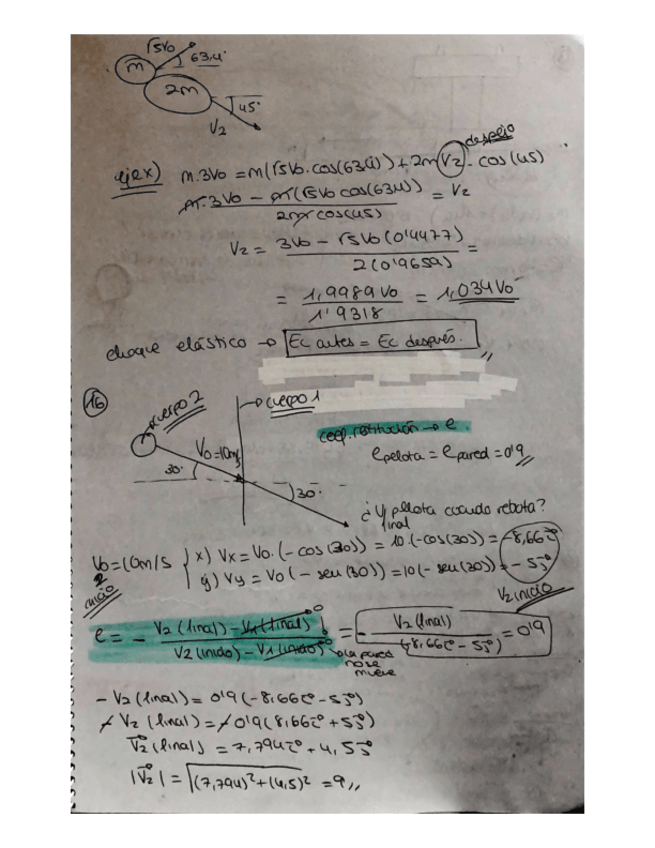 √5V₀
63,4°
m
2m
45°
V₂
despejo
eje x) m·3V₀ = m(√5V₀·cos(63'4)) + 2m V₂ · cos(45)
m·3V₀ - m(√5V₀ cos(63'4)) / 2m cos(45) = V₂
V₂ = 3V₀ - √5V₀(0'4477) / 2(0'9659) =
= 1,9989V₀ / 1'9318 = 1,034V₀
choque elástico → Ec antes = Ec después.
16
cuerpo 2
→ cuerpo 1
coef. restitución → e
V₀=10m/s
e pelota = e pared = 0'9
30°
30°
¿V pelota cuando rebota?
final
V₀=10m/s { x) Vx = V₀·(-cos(30)) = 10·(-cos(30)) = -8,66i
2 inicio
y) Vy = V₀(-sen(30)) = 10(-sen(30)) = -5j
V₂ inicio
e = - V₂(final) - V₁(final) / V₂(inicio) - V₁(inicio) = - V₂(final) / (-8,66i - 5j) = 0'9
0
0
la pared no se mueve
- V₂(final) = 0'9(-8,66i - 5j)
- V₂(final) = -0'9(8,66i + 5j)
V₂(final) = 7,794i + 4,5j
|V₂| = √(7,794)² + (4,5)² = 9,,